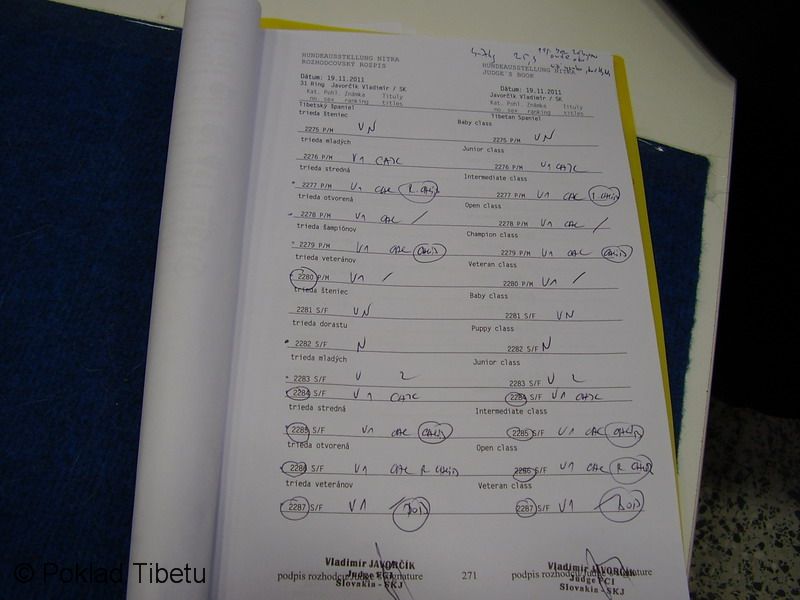 HUNDEAUSSTELLUNG NITRA
ROZHODCOVSKÝ ROZPIS
Dátum: 19.11.2011
31 Ring Javorčík Vladimír / SK
Kat. Pohl. Známka Tituly
no. sex ranking titles
Tibetský španiel
trieda šteniec
2275 P/M VN
trieda mladých
2276 P/M V1 CAJC
trieda stredná
2277 P/M V1 CAC R.CACIB
trieda otvorená
2278 P/M V1 CAC /
trieda šampiónov
2279 P/M V1 CAC CACIB
trieda veteránov
2280 P/M V1 /
trieda šteniec
2281 S/F VN
trieda dorastu
2282 S/F N
trieda mladých
2283 S/F V 2
2284 S/F V1 CAJC
trieda stredná
2285 S/F V1 CAC CACIB
trieda otvorená
2286 S/F V1 CAC R CACIB
trieda veteránov
2287 S/F V1 / BOB
Vladimír JAVORČÍK
Judge FCI
Slovakia - SKJ
podpis rozhodcu/Judge's signature
271
HUNDEAUSSTELLUNG NITRA
JUDGE'S BOOK
Dátum: 19.11.2011
Javorčík Vladimír / SK
Kat. Pohl. Známka Tituly
no. sex ranking titles
Tibetan Spaniel
Baby class
2275 P/M VN
Junior class
2276 P/M V1 CAJC
Intermediate class
2277 P/M V1 CAC r.CACIB
Open class
2278 P/M V1 CAC /
Champion class
2279 P/M V1 CAC CACIB
Veteran class
2280 P/M V1 /
Baby class
2281 S/F VN
Puppy class
2282 S/F N
Junior class
2283 S/F V 2
2284 S/F V1 CAJC
Intermediate class
2285 S/F V1 CAC CACIB
Open class
2286 S/F V1 CAC R CACIB
Veteran class
2287 S/F V1 / BOB
Vladimír JAVORČÍK
Judge FCI
Slovakia - SKJ
podpis rozhodcu/Judge's signature
© Poklad Tibetu